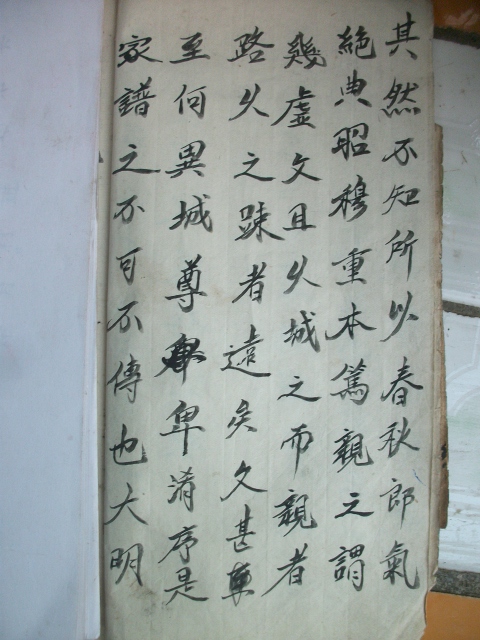 其然不知所以春秋郎氣
絕典昭穆重本篤親之謂
幾虛文且久城之而親者
路久之踈者遠矣久甚尊
至何異城尊卑淆序是
家譜之不可不傳也大明